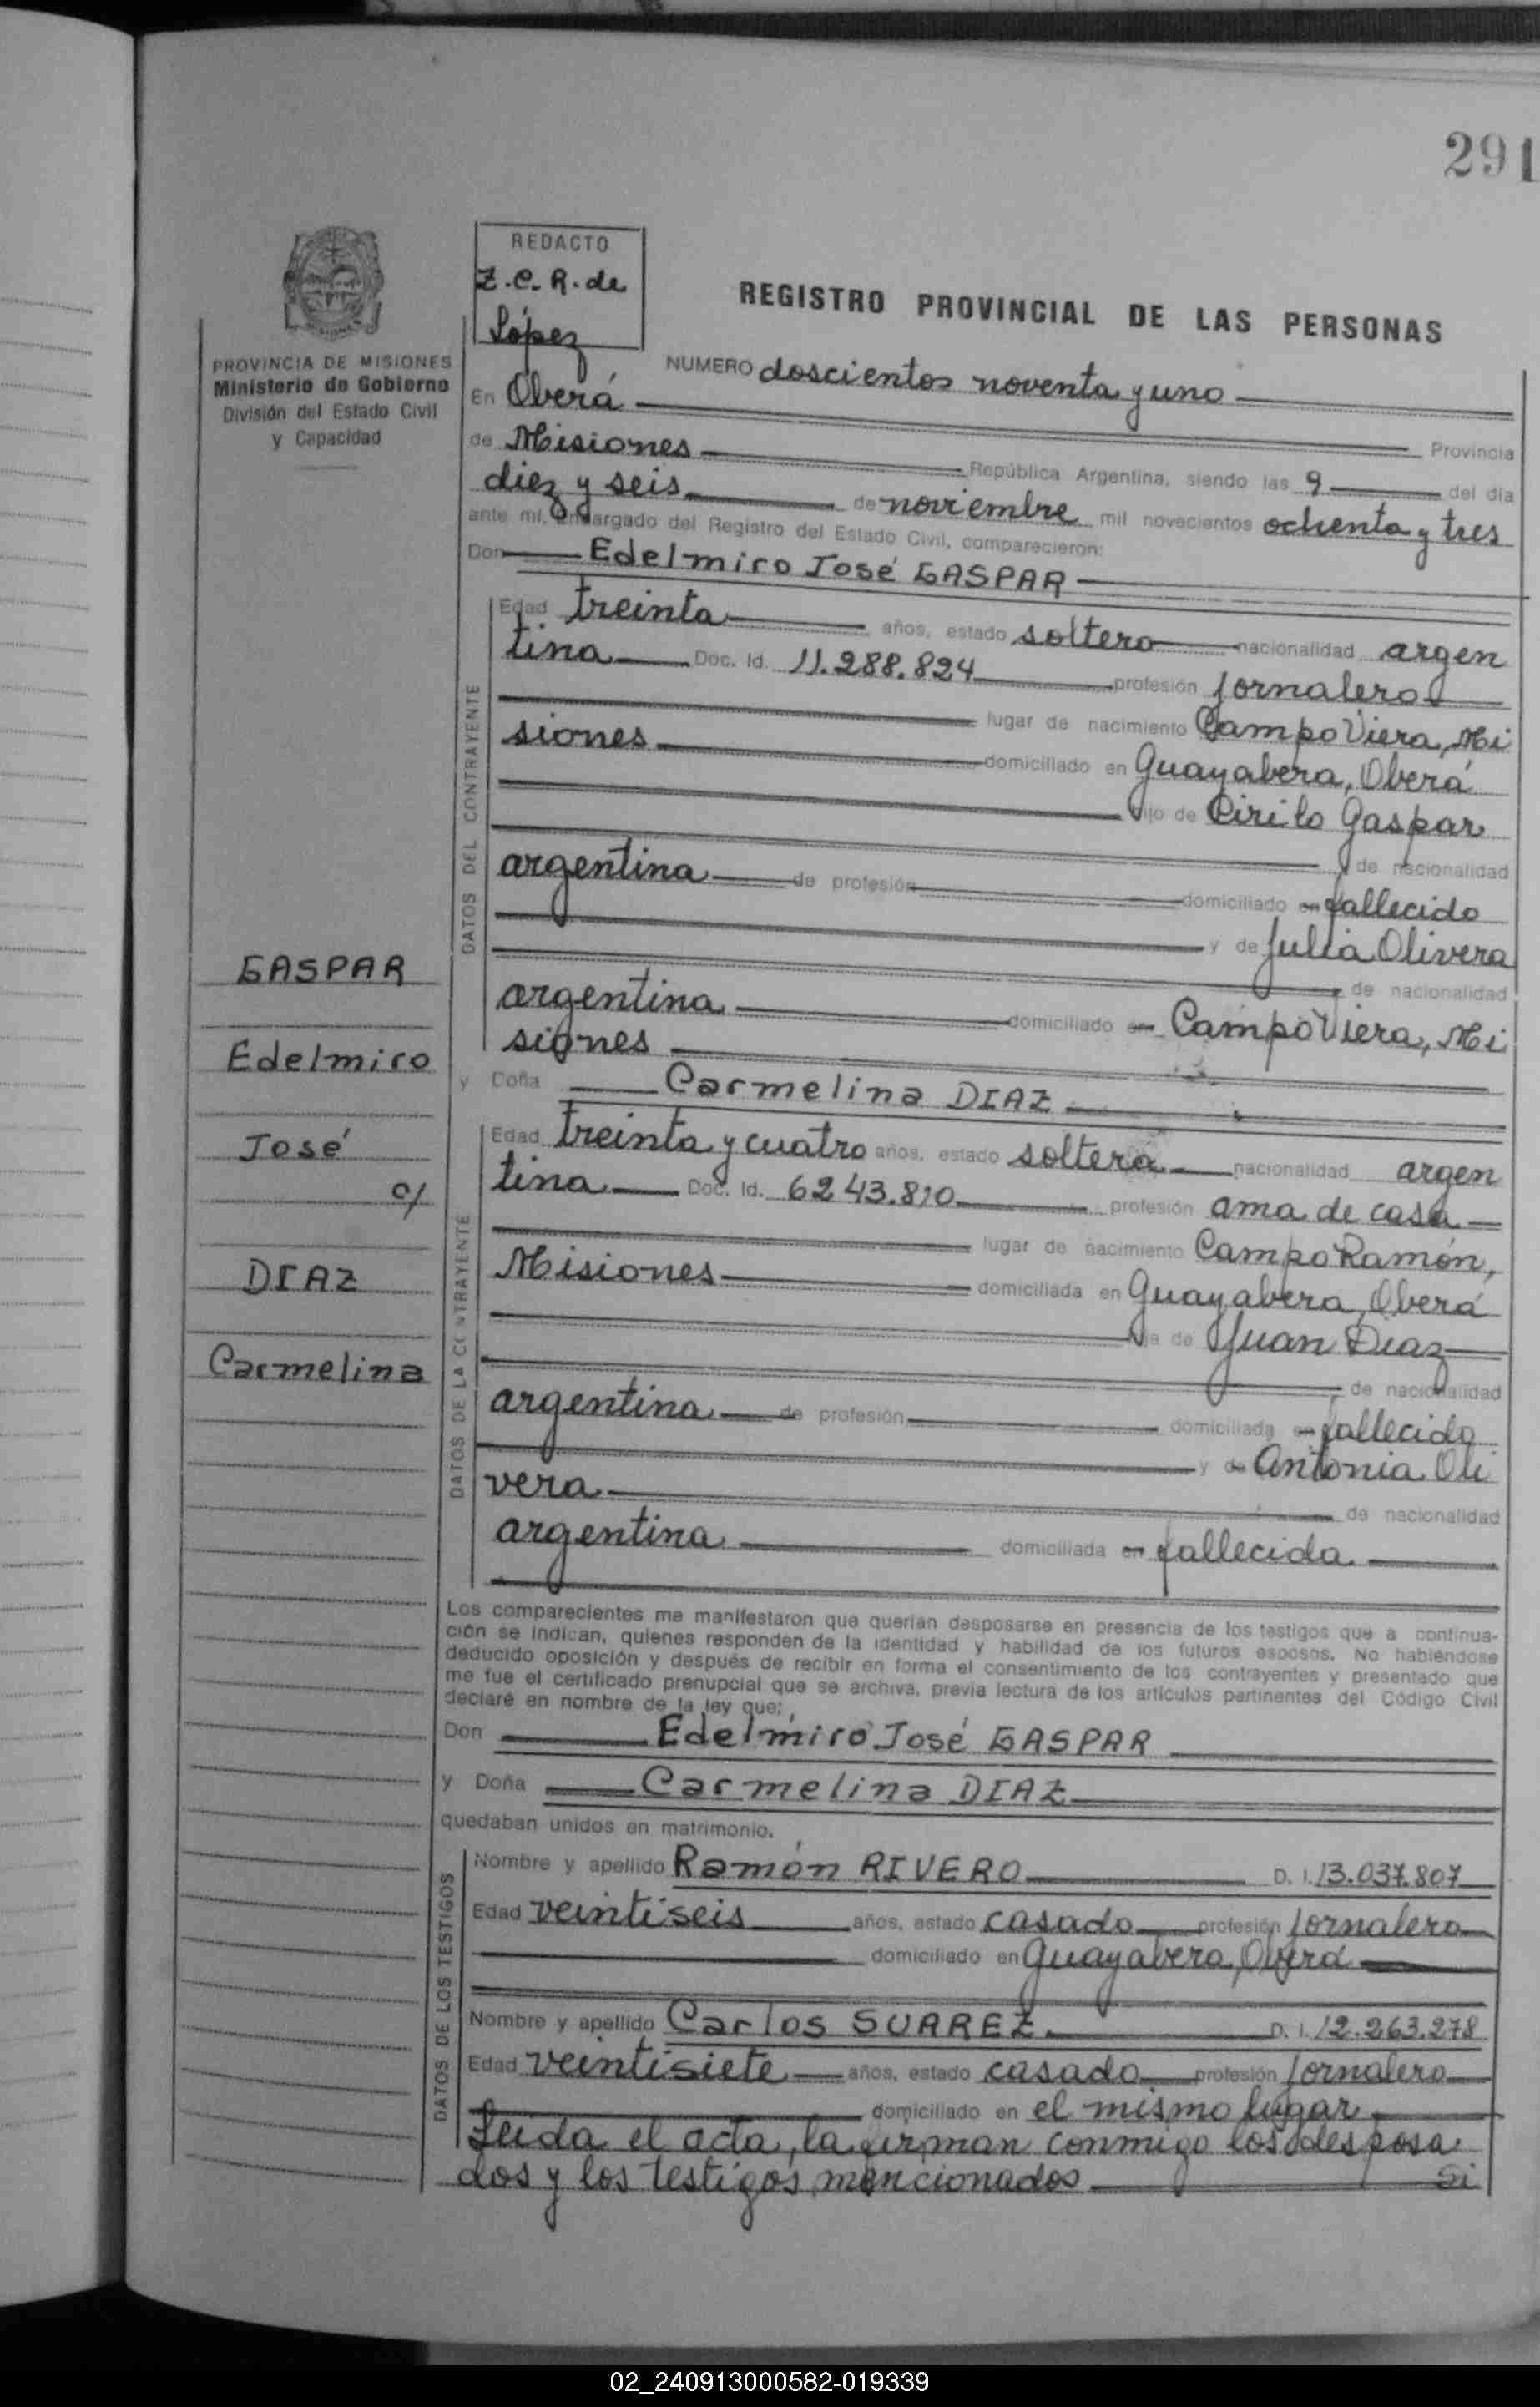 291
REDACTO
Z.C.R. de
López
REGISTRO PROVINCIAL DE LAS PERSONAS
PROVINCIA DE MISIONES
Ministerio de Gobierno
División del Estado Civil
y Capacidad
NUMERO doscientos noventa y uno
En Oberá
Provincia
de Misiones República Argentina, siendo las 9 del día
diez y seis de noviembre mil novecientos ochenta y tres
ante mí, Encargado del Registro del Estado Civil, comparecieron:
Don Edelmiro José GASPAR
DATOS DEL CONTRAYENTE
Edad treinta años, estado soltero nacionalidad argen
tina Doc. Id. 11.288.824 profesión jornalero
lugar de nacimiento Campo Viera, Mi
siones domiciliado en Guayabera, Oberá
hijo de Cirilo Gaspar
de nacionalidad
argentina de profesión domiciliado en fallecido
y de Julia Olivera
de nacionalidad
argentina domiciliado en Campo Viera, Mi
siones
y Doña Carmelina DIAZ
DATOS DE LA CONTRAYENTE
Edad treinta y cuatro años, estado soltera nacionalidad argen
tina Doc. Id. 6243.810 profesión ama de casa
lugar de nacimiento Campo Ramón,
Misiones domiciliada en Guayabera, Oberá
hija de Juan Diaz
de nacionalidad
argentina de profesión domiciliada en fallecido
y de Antonia Oli
vera de nacionalidad
argentina domiciliada en fallecida
GASPAR
Edelmiro
José
c/
DIAZ
Carmelina
Los comparecientes me manifestaron que querían desposarse en presencia de los testigos que a continua-
ción se indican, quienes responden de la identidad y habilidad de los futuros esposos. No habiéndose
deducido oposición y después de recibir en forma el consentimiento de los contrayentes y presentado que
me fue el certificado prenupcial que se archiva, previa lectura de los artículos pertinentes del Código Civil
declaré en nombre de la ley que:
Don Edelmiro José GASPAR
y Doña Carmelina DIAZ
quedaban unidos en matrimonio.
DATOS DE LOS TESTIGOS
Nombre y apellido Ramón RIVERO D. I. 13.037.807
Edad veintiseis años, estado casado profesión jornalero
domiciliado en Guayabera, Oberá
Nombre y apellido Carlos SUAREZ D. I. 12.263.278
Edad veintisiete años, estado casado profesión jornalero
domiciliado en el mismo lugar
Leida el acta, la firman conmigo los desposa
dos y los testigos mencionados Si
02_240913000582-019339